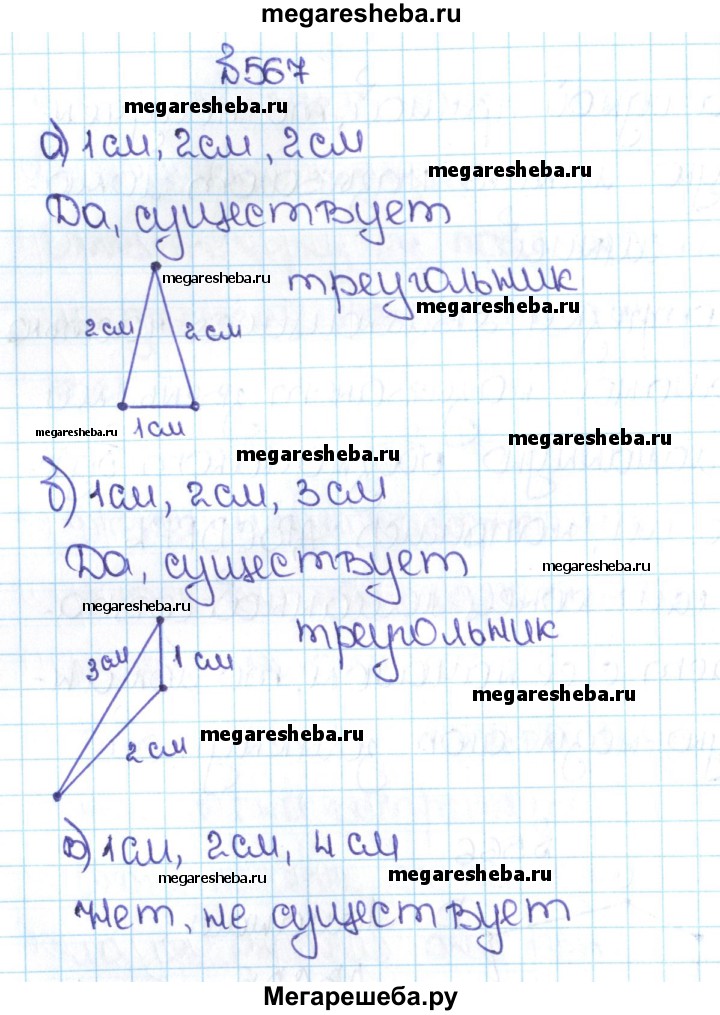 megaresheba.ru
№567
megaresheba.ru
а) 1см, 2см, 2см
megaresheba.ru
Да, существует
megaresheba.ru
треугольник
megaresheba.ru
2см
2см
megaresheba.ru
1см
megaresheba.ru
megaresheba.ru
б) 1см, 2см, 3см
Да, существует
megaresheba.ru
megaresheba.ru
треугольник
3см
1см
megaresheba.ru
megaresheba.ru
2см
в) 1см, 2см, 4см
megaresheba.ru
megaresheba.ru
Нет, не существует
Мегарешеба.ру